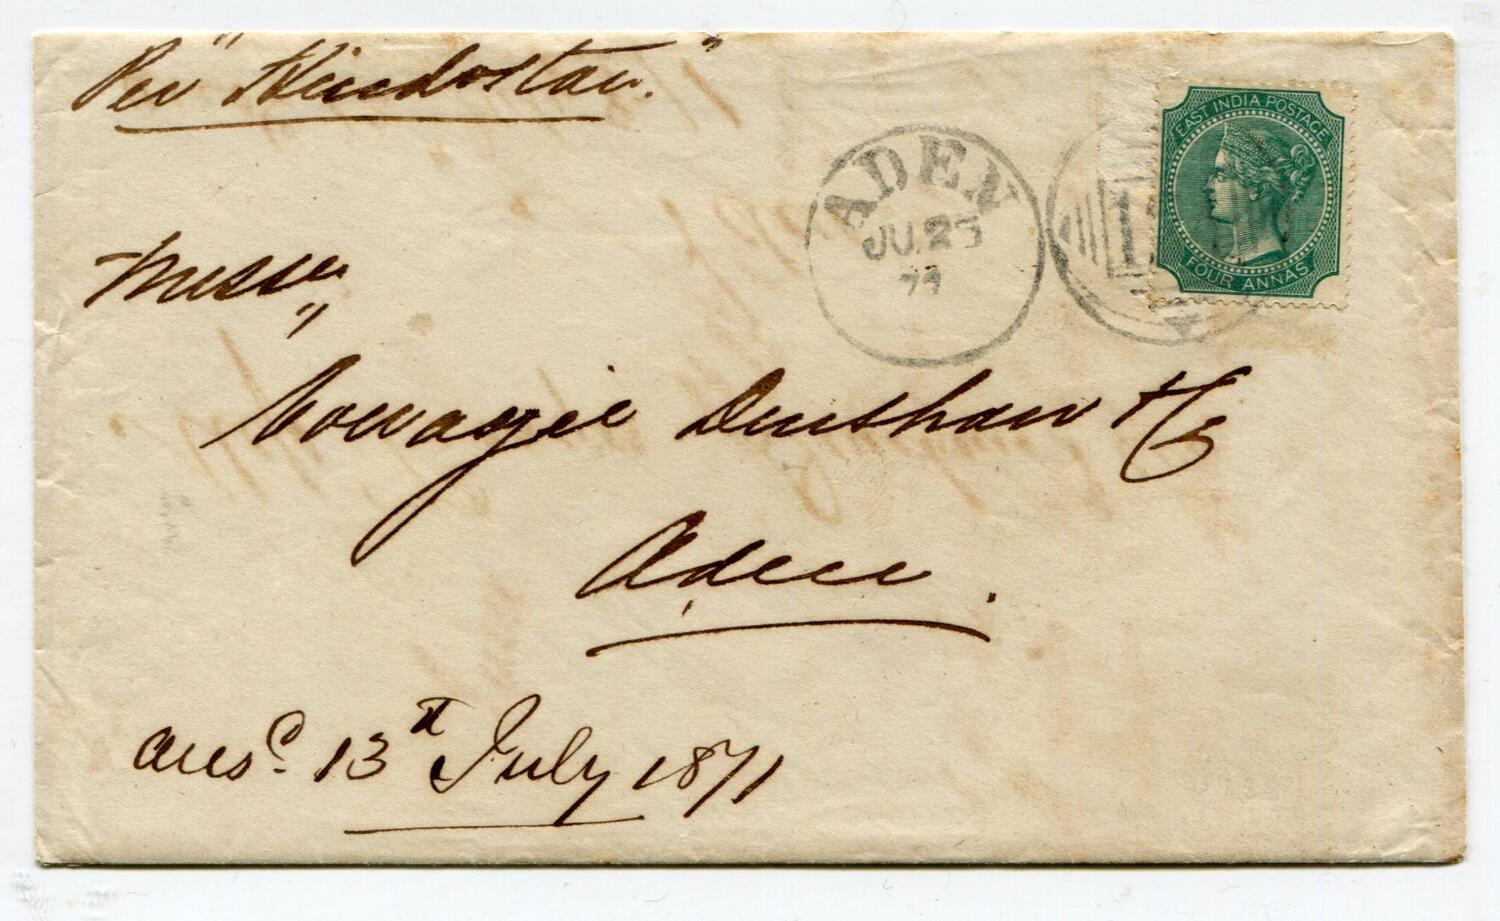 Per "Hindostan."
ADEN
JU.25
71
EAST INDIA POSTAGE
FOUR ANNAS
Messrs
Cowasjee Dinshaw & Co
Aden.
ansd. 13th July 1871